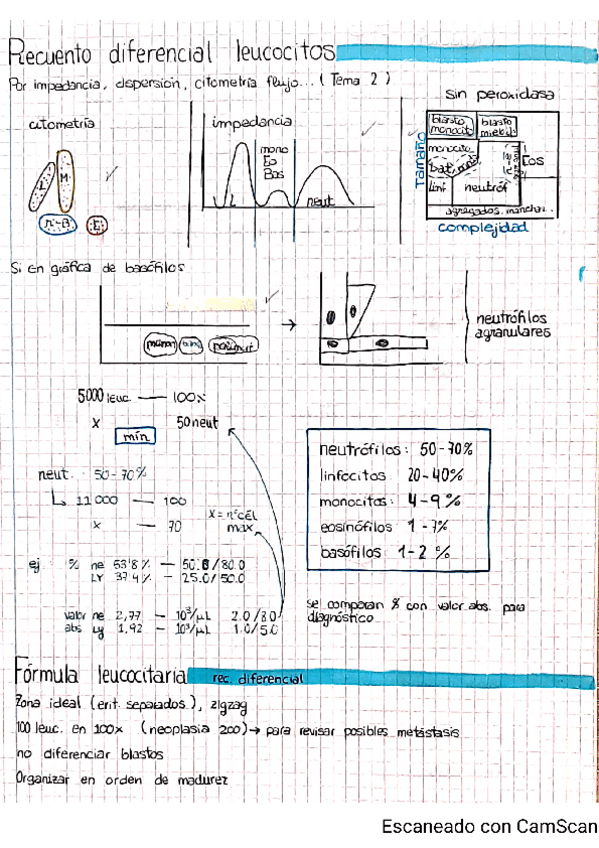 Recuento diferencial leucocitos
Por impedancia, dispersión, citometría flujo... (Tema 2)
citometría
L
M
N-B
E
impedancia
mono
Eo
Bas
L
neut
sin peroxidasa
Tamaño
blasto
monocito
blasto
monocito
Eos
linf
neutróf
agregados, manchai..
complejidad
Si en gráfica de basófilos
neutrófilos
agranulares
5000 leuc — 100%
x 50 neut
min
neut. 50-70%
↳ 11000 — 100
x — 70
x = nºcél
max
neutrófilos: 50-70%
linfocitos 20-40%
monocitos: 4-9%
eosinófilos 1-7%
basófilos 1-2 %
ej % ne 53'8% — 50.0/80.0
LY 37.4% — 25.0/50.0
valor ne 2,77 — 10³/µL 2.0/8.0
abs Ly 1.92 — 10³/µL 1.0/5.0
se comparan % con valor abs. para
diagnóstico
Fórmula leucocitaria rec. diferencial
Zona ideal (erit. separados), zigzag
100 leuc. en 100x (neoplasia 200) → para revisar posibles metástasis
no diferenciar blastos
Organizar en orden de madurez
Escaneado con CamScan